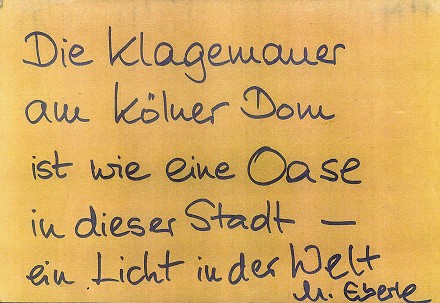 Die Klagemauer
am Kölner Dom
ist wie eine Oase
in dieser Stadt —
ein Licht in der Welt
M. Eberle